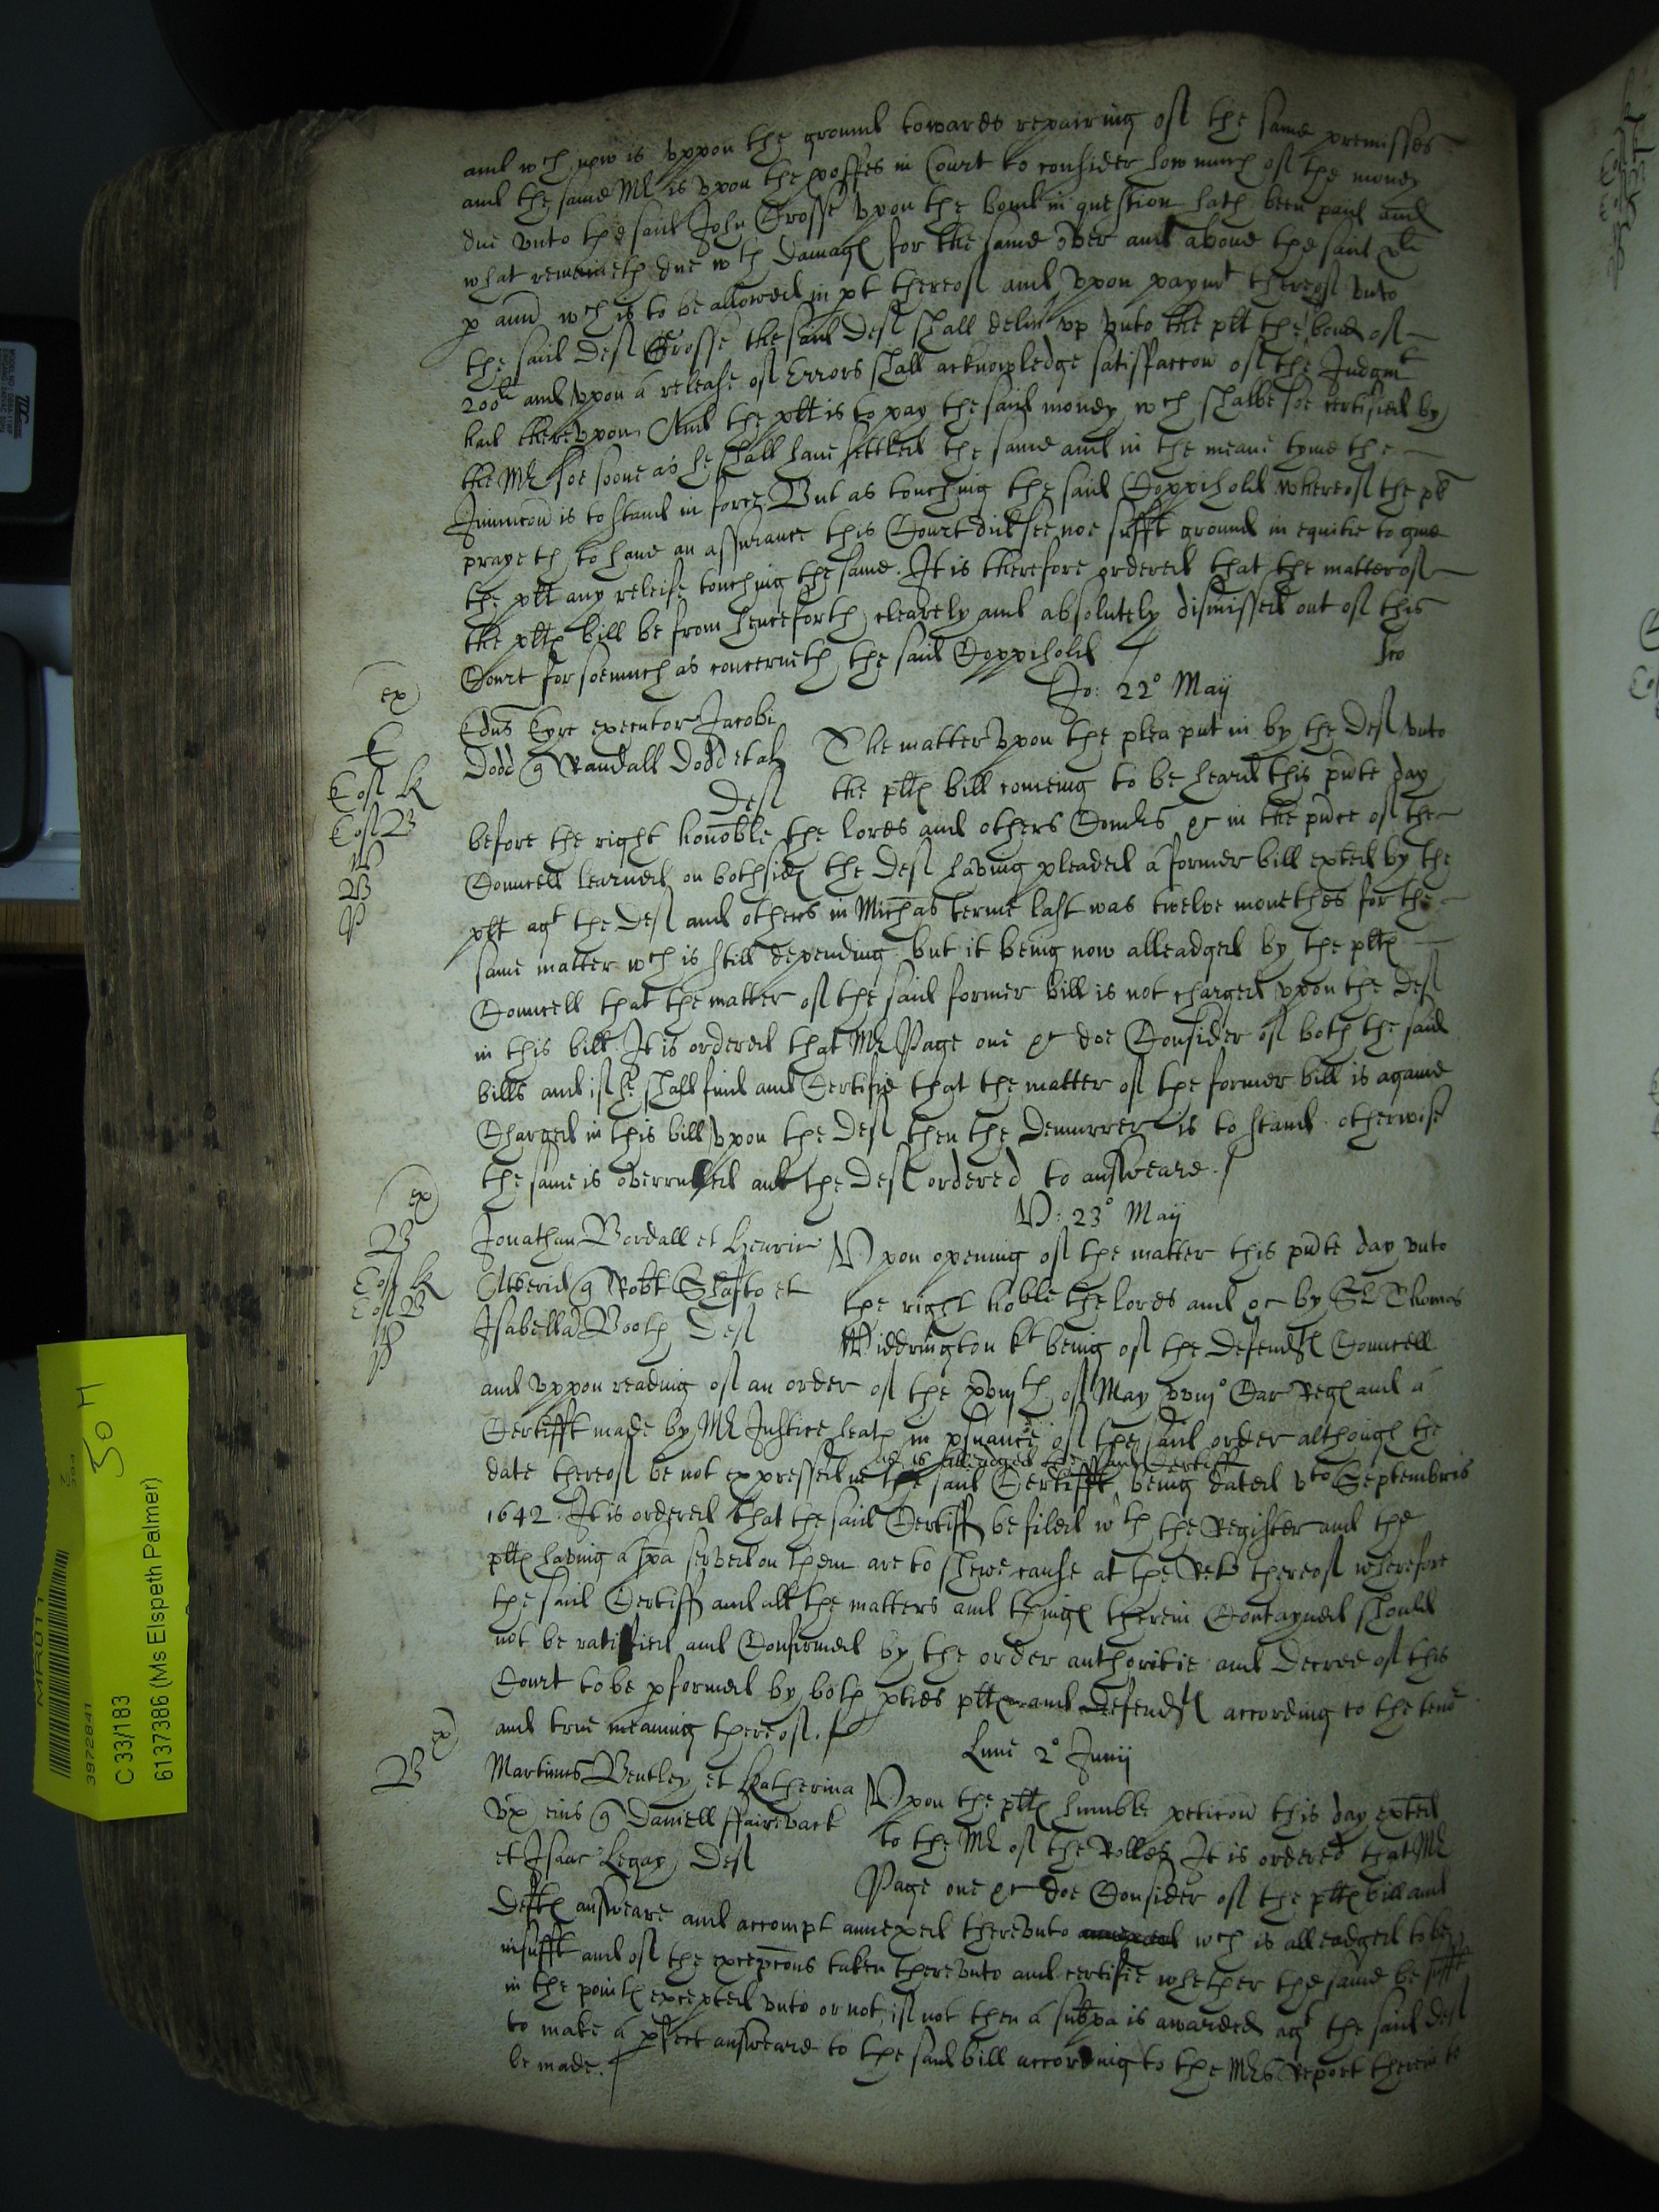 and wch now is uppon the ground towards repairing of the same premisses
and the same Mr is upon the proffes in Court to consider how much of the money
due unto the said John Crosse upon the bond in question hath been paid and
what remaineth due wth damage for the same over and above the said
p ann wch is to be allowed in pt thereof and upon paymt thereof unto
the said Deft Crosse the said Deft shall deliver up unto the plt the bond of
200li and upon a release of Errors shall acknowledge satisfaccon of the Judgmt
had thereupon And the plt is to pay the said money wch shalbe soe certified by
the Mr soe soone as he shall have settled the same and in the meane tyme the
Iniunccon is to stand in force But as touching the said Coppihold whereof the plt
prayeth to have an assurance this Court did see noe sufft ground in equitie to give
the plt any releife touching the same. It is therefore ordered that the matter of
the plts bill be from henceforth clearely and absolutely dismissed out of this
Court for soemuch as concerneth the said Coppihold
Jo: 22o Maij
Edrus Eyre executor Jacobi
Dodd q Randall Dodd et al
Def
The matter upon the plea put in by the Def unto
the plts bill comeing to be heard this pnte day
before the right honoble the lords and others Comrs &c in the pnce of the
Councell learned on bothsides the Def having pleaded a former bill exted by the
plt agt the Def and others in Michas terme last was twelve monethes for the
same matter wch is still depending but it being now alleadged by the plts
Councell that the matter of the said former bill is not charged upon the Def
in this bill. It is ordered that Mr Page one &c doe Consider of both the said
bills and if he shall find and Certifie that the matter of the former bill is againe
Charged in this bill upon the Def then the Demurrer is to stand otherwise
the same is overruled and the Def ordered to answeare.
V: 23o Maij
Jonathan Bordall et Henric
q Robt Shafto et
Isabella Booth Def
Upon opening of the matter this pnte day unto
the right hoble the lords and &c by Sr Thomas
Widdrington kt being of the Defendts Councell
and uppon reading of an order of the xviijth of May xviijo Car Regs and a
Certifft made by Mr Justice heath in psuance of the said order although the
as is alleadged the said Certiff
date thereof be not expressed in the said Certifft being dated vto Septembris
1642. It is ordered that the said Certiff be filed wth the Register and the
plts having a spa served on them are to shewe cause at the Retorne thereof wherefore
the said Certiff and all the matters and things therein Contayned should
not be ratified and Confirmed by the order authoritie and Decree of this
Court to be pformed by both pties plts and Defendts according to the teno
and true meaning thereof.
Lune 2o Junij
Martinus Bentley et Katherina
Ux eius q Daniell ffairevact
et Isaac Legay Def
Upon the plts humble peticon this day exted
to the Mr of the Rolles It is ordered that Mr
Page one &c doe Consider of the plts bill and
Defts answeare and accompt annexed thereunto wch is alleadged to be
insufft and of the excepcons taken thereunto and certifie whether the same be sufft
in the points excepted unto or not, if not then a subpa is awarded agt the said Def
to make a pfect answeare to the said bill according to the Mrs Report therein to
be made.
ex
E
Cos K
Cos B
B
P
ex
B
Cos K
Cos B
P
ex
B
MR011
3972841
C 33/183
6137386 (Ms Elspeth Palmer)
50 H